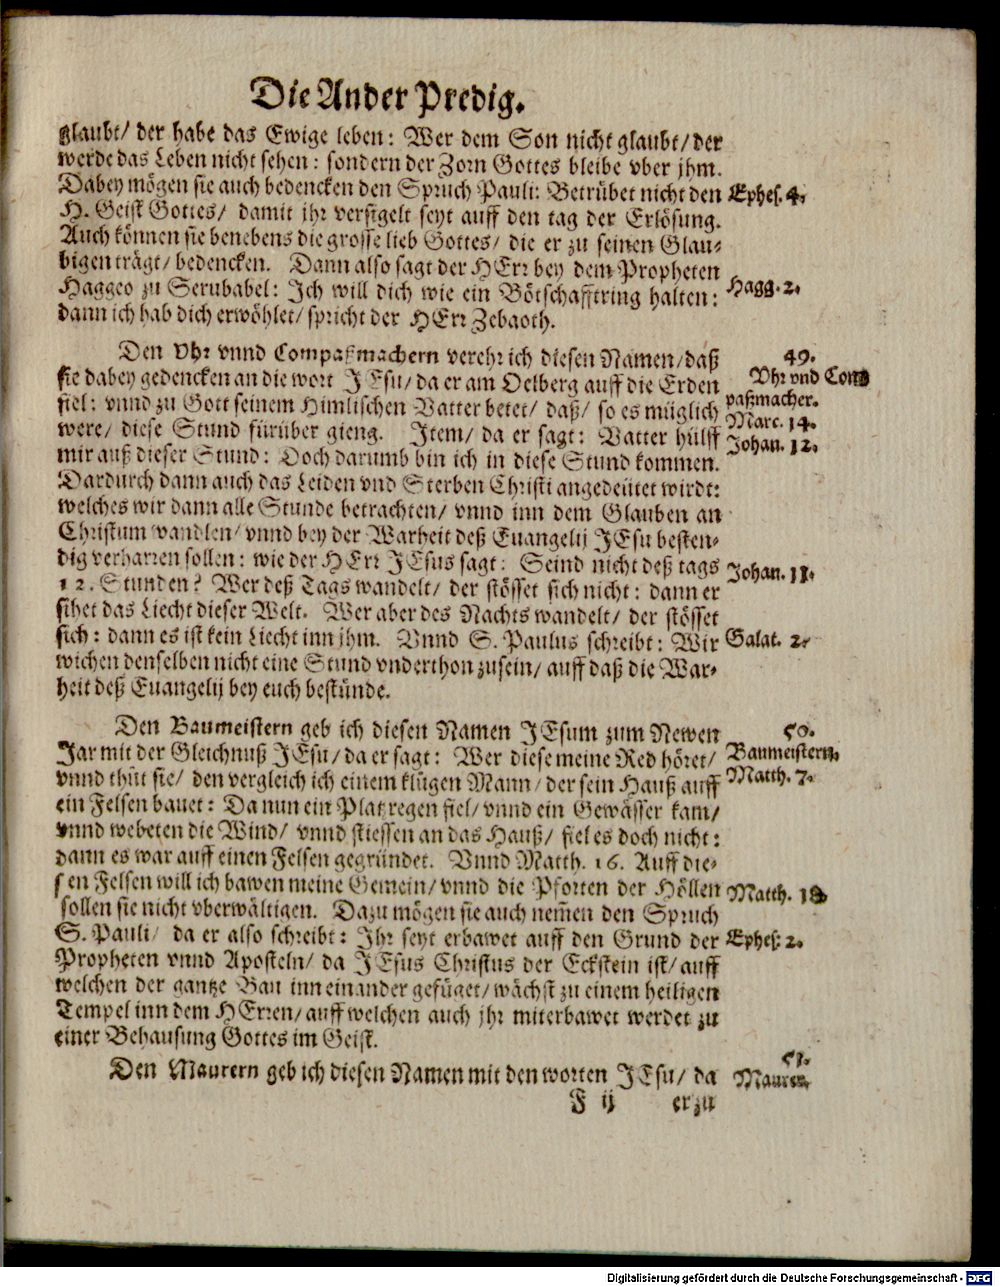 Die Ander Predig.
glaubt/ der habe das Ewige leben: Wer dem Son nicht glaubt/ der
werde das Leben nicht sehen: sondern der Zorn Gottes bleibe vber jhm.
Dabey mögen sie auch bedencken den Spruch Pauli: Betrübet nicht den
Ephes. 4.
H. Geist Gottes/ damit jhr versigelt seyt auff den tag der Erlösung.
Auch können sie benebens die grosse lieb Gottes/ die er zu seinen Glau-
bigen trägt/ bedencken. Dann also sagt der HErr bey dem Propheten
Haggeo zu Serubabel: Ich will dich wie ein Bötschafftring halten:
Hagg. 2.
dann ich hab dich erwöhlet/ spricht der HErr Zebaoth.
Den Vhr vnnd Compaßmachern verehr ich diesen Namen/ daß
49.
sie dabey gedencken an die wort JEsu/ da er am Oelberg auff die Erden
Vhr vnd Com-
fiel: vnnd zu Gott seinem Himlischen Vatter betet/ daß/ so es müglich
paßmacher.
were/ diese Stund fürüber gieng. Item/ da er sagt: Vatter hülff
Marc. 14.
mir auß dieser Stund: Doch darumb bin ich in diese Stund kommen.
Johan. 12.
Dardurch dann auch das Leiden vnd Sterben Christi angedeütet wirdt:
welches wir dann alle Stunde betrachten/ vnnd inn dem Glauben an
Christum wandlen/ vnnd bey der Warheit deß Euangelij JEsu besten-
dig verharren sollen: wie der HErr JEsus sagt: Seind nicht deß tags
12. Stunden? Wer deß Tags wandelt/ der stösset sich nicht: dann er
Johan. 11.
sihet das Liecht dieser Welt. Wer aber des Nachts wandelt/ der stösset
sich: dann es ist kein Liecht inn jhm. Vnnd S. Paulus schreibt: Wir
Galat. 2.
wichen denselben nicht eine Stund vnderthon zusein/ auff daß die War-
heit deß Euangelij bey euch bestünde.
Den Baumeistern geb ich diesen Namen JEsum zum Newen
50.
Jar mit der Gleichnuß JEsu/ da er sagt: Wer diese meine Red höret/
Baumeistern.
vnnd thüt sie/ den vergleich ich einem klügen Mann/ der sein Hauß auff
Matth. 7.
ein Felsen bauet: Da nun ein Platzregen fiel/ vnnd ein Gewässer kam/
vnnd webeten die Wind/ vnnd stiessen an das Hauß/ fiel es doch nicht:
dann es war auff einen Felsen gegründet. Vnnd Matth. 16. Auff die-
sen Felsen will ich bawen meine Gemein/ vnnd die Pforten der Höllen
Matth. 18.
sollen sie nicht vberwältigen. Dazu mögen sie auch nem̃en den Spruch
S. Pauli/ da er also schreibt: Ihr seyt erbawet auff den Grund der
Ephes. 2.
Propheten vnnd Aposteln/ da JEsus Christus der Eckstein ist/ auff
welchen der gantze Bau inn einander gefüget/ wächst zu einem heiligen
Tempel inn dem HErren/ auff welchen auch jhr miterbawet werdet zu
einer Behausung Gottes im Geist.
51.
Den Maurern geb ich diesen Namen mit den worten JEsu/ da
Maurer.
F ij
er zu
Digitalisierung gefördert durch die Deutsche Forschungsgemeinschaft - DFG